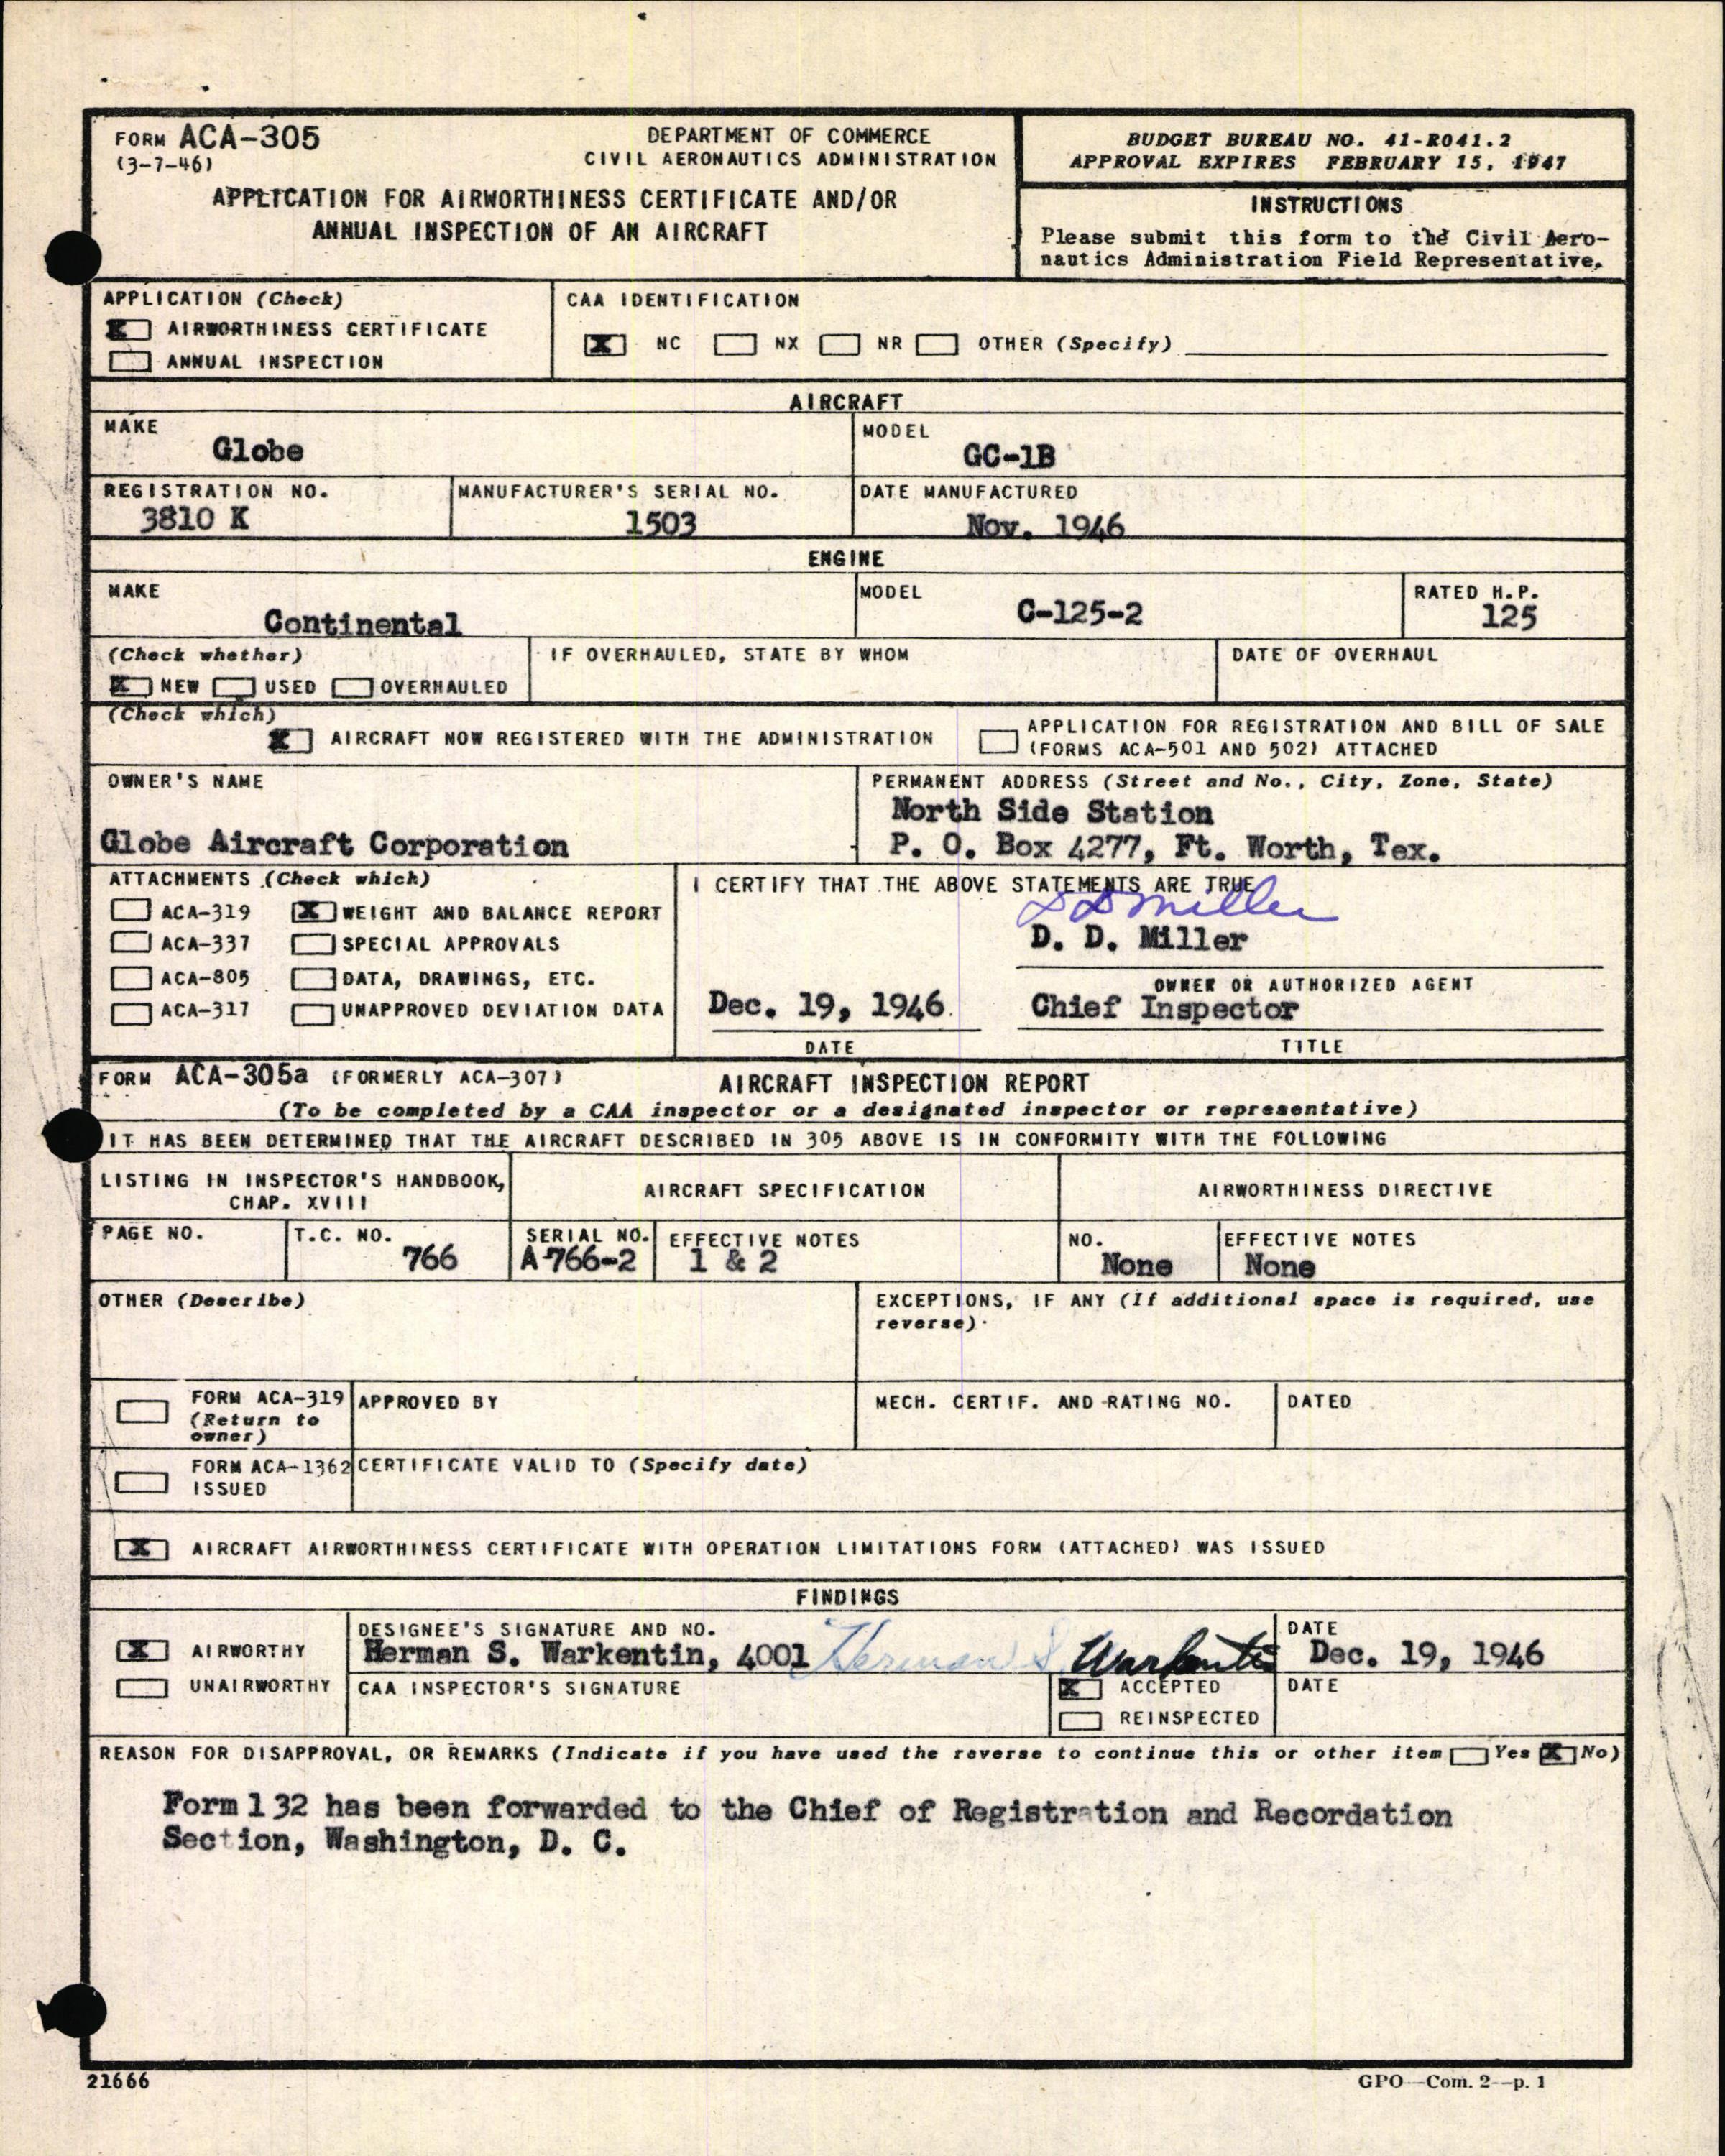 FORM ACA-305
(3-7-46)
DEPARTMENT OF COMMERCE
CIVIL AERONAUTICS ADMINISTRATION
APPLICATION FOR AIRWORTHINESS CERTIFICATE AND/OR
ANNUAL INSPECTION OF AN AIRCRAFT
BUDGET BUREAU NO. 41-R041.2
APPROVAL EXPIRES FEBRUARY 15, 1947
INSTRUCTIONS
Please submit this form to the Civil Aero-
nautics Administration Field Representative.
APPLICATION (Check)
X AIRWORTHINESS CERTIFICATE
ANNUAL INSPECTION
CAA IDENTIFICATION
X NC NX NR OTHER (Specify)
AIRCRAFT
MAKE
Globe
MODEL
GC-1B
REGISTRATION NO.
3810 K
MANUFACTURER'S SERIAL NO.
1503
DATE MANUFACTURED
Nov. 1946
ENGINE
MAKE
Continental
MODEL
C-125-2
RATED H.P.
125
(Check whether)
X NEW USED OVERHAULED
IF OVERHAULED, STATE BY WHOM
DATE OF OVERHAUL
(Check which)
X AIRCRAFT NOW REGISTERED WITH THE ADMINISTRATION
APPLICATION FOR REGISTRATION AND BILL OF SALE
(FORMS ACA-501 AND 502) ATTACHED
OWNER'S NAME
Globe Aircraft Corporation
PERMANENT ADDRESS (Street and No., City, Zone, State)
North Side Station
P. O. Box 4277, Ft. Worth, Tex.
ATTACHMENTS (Check which)
ACA-319 X WEIGHT AND BALANCE REPORT
ACA-337 SPECIAL APPROVALS
ACA-805 DATA, DRAWINGS, ETC.
ACA-317 UNAPPROVED DEVIATION DATA
I CERTIFY THAT THE ABOVE STATEMENTS ARE TRUE
D D Miller
D. D. Miller
OWNER OR AUTHORIZED AGENT
Dec. 19, 1946 Chief Inspector
DATE TITLE
FORM ACA-305a (FORMERLY ACA-307) AIRCRAFT INSPECTION REPORT
(To be completed by a CAA inspector or a designated inspector or representative)
IT HAS BEEN DETERMINED THAT THE AIRCRAFT DESCRIBED IN 305 ABOVE IS IN CONFORMITY WITH THE FOLLOWING
LISTING IN INSPECTOR'S HANDBOOK,
CHAP. XVIII
AIRCRAFT SPECIFICATION
AIRWORTHINESS DIRECTIVE
PAGE NO.
T.C. NO.
766
SERIAL NO.
A-766-2
EFFECTIVE NOTES
1 & 2
NO.
None
EFFECTIVE NOTES
None
OTHER (Describe)
EXCEPTIONS, IF ANY (If additional space is required, use
reverse).
FORM ACA-319
(Return to
owner)
APPROVED BY
MECH. CERTIF. AND RATING NO.
DATED
FORM ACA-1362
ISSUED
CERTIFICATE VALID TO (Specify date)
X AIRCRAFT AIRWORTHINESS CERTIFICATE WITH OPERATION LIMITATIONS FORM (ATTACHED) WAS ISSUED
FINDINGS
X AIRWORTHY
UNAIRWORTHY
DESIGNEE'S SIGNATURE AND NO.
Herman S. Warkentin, 4001 Herman S. Warkentin
DATE
Dec. 19, 1946
CAA INSPECTOR'S SIGNATURE
X ACCEPTED
REINSPECTED
DATE
REASON FOR DISAPPROVAL, OR REMARKS (Indicate if you have used the reverse to continue this or other item Yes X No)
Form 132 has been forwarded to the Chief of Registration and Recordation
Section, Washington, D. C.
21666
GPO—Com. 2—p. 1